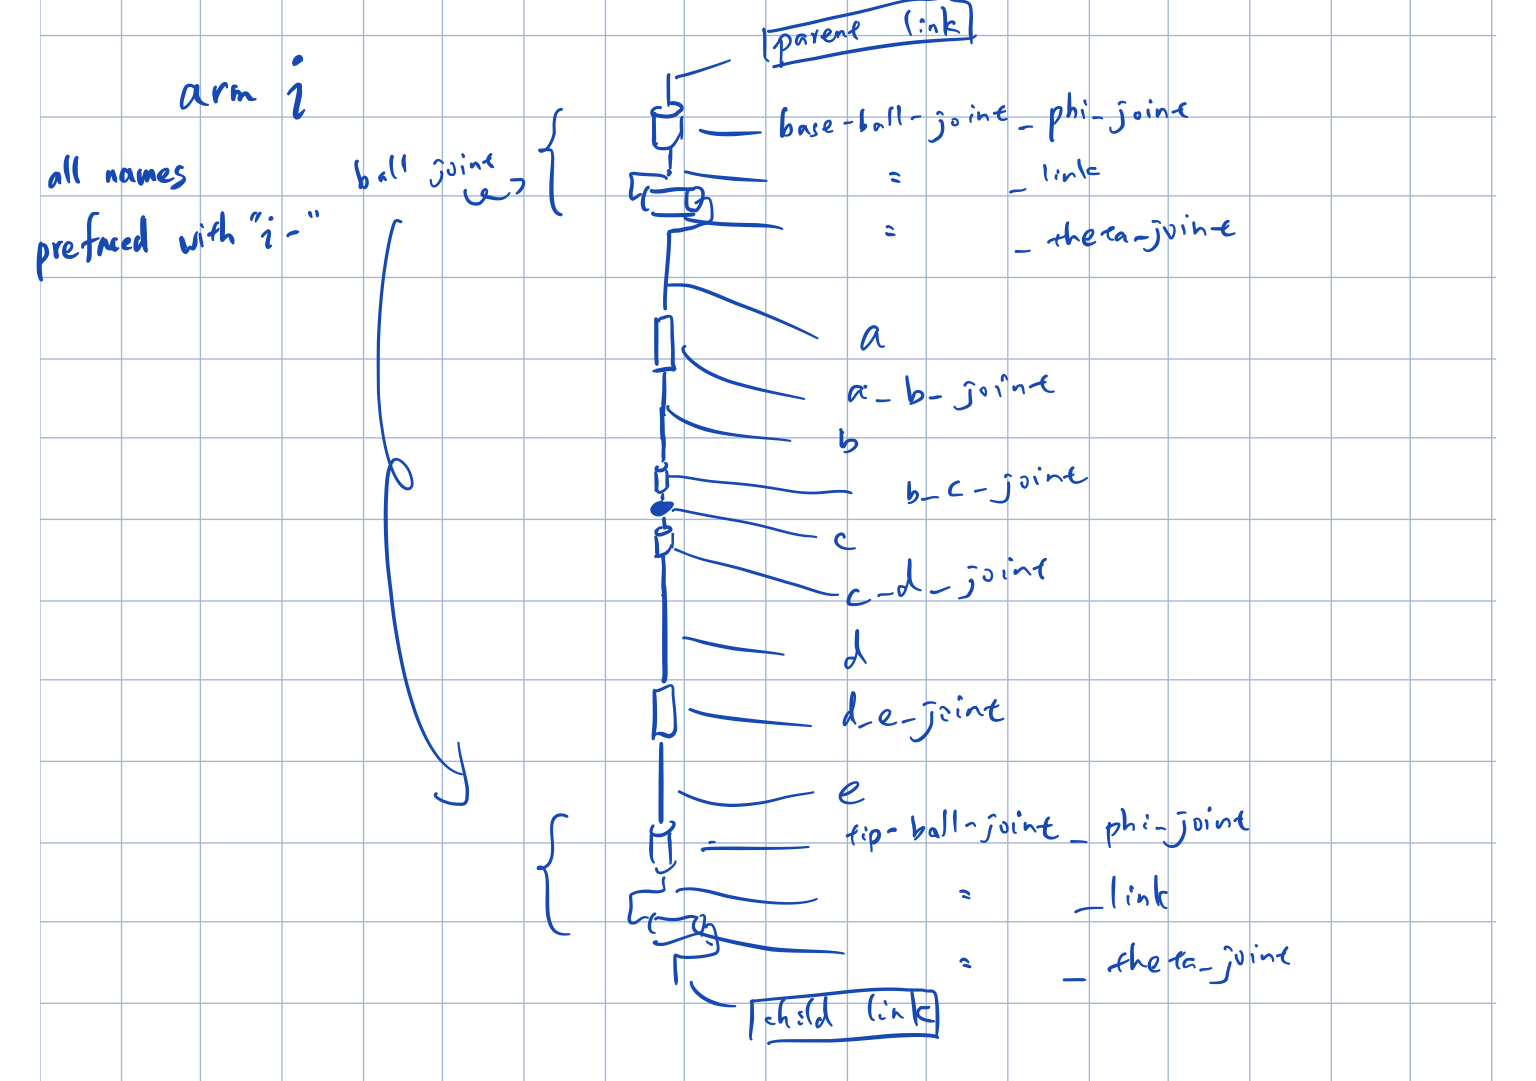 parent link
arm i
all names
prefaced with "i-"
ball joint
base-ball-joint_phi-joint
" _link
" _theta-joint
a
a_b_joint
b
b_c_joint
c
c_d_joint
d
d_e_joint
e
tip-ball-joint_phi-joint
" _link
" _theta_joint
child link